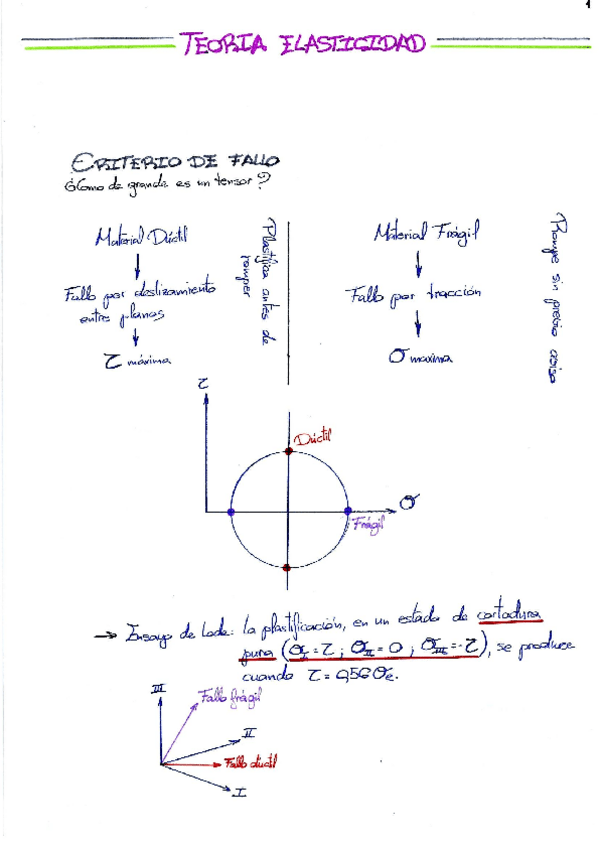 1
TEORIA ELASTICIDAD
CRITERIO DE FALLO
¿Como de grande es un tensor?
Material Dúctil
Fallo por deslizamiento
entre planos
τ máxima
Plastifica antes de
romper
Material Frágil
Fallo por tracción
σ maxima
Rompe sin previo aviso
τ
Dúctil
σ
Frágil
→ Ensayo de Lode: la plastificación, en un estado de cortadura
pura (σI = τ ; σII = 0 ; σIII = -τ), se produce
cuando τ = 0,56 σe.
III
Fallo frágil
II
Fallo dúctil
I